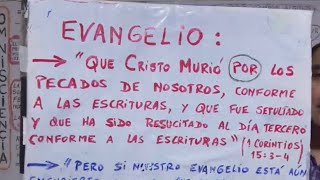 OMNISCIENCIA
EVANGELIO:
→ "QUE CRISTO MURIÓ POR LOS
PECADOS DE NOSOTROS, CONFORME
A LAS ESCRITURAS, Y QUE FUE SEPULTADO
Y QUE HA SIDO RESUCITADO AL DÍA TERCERO
CONFORME A LAS ESCRITURAS" (1 CORINTIOS
15:3-4)
→ "PERO SI NUESTRO EVANGELIO ESTÁ AÚN